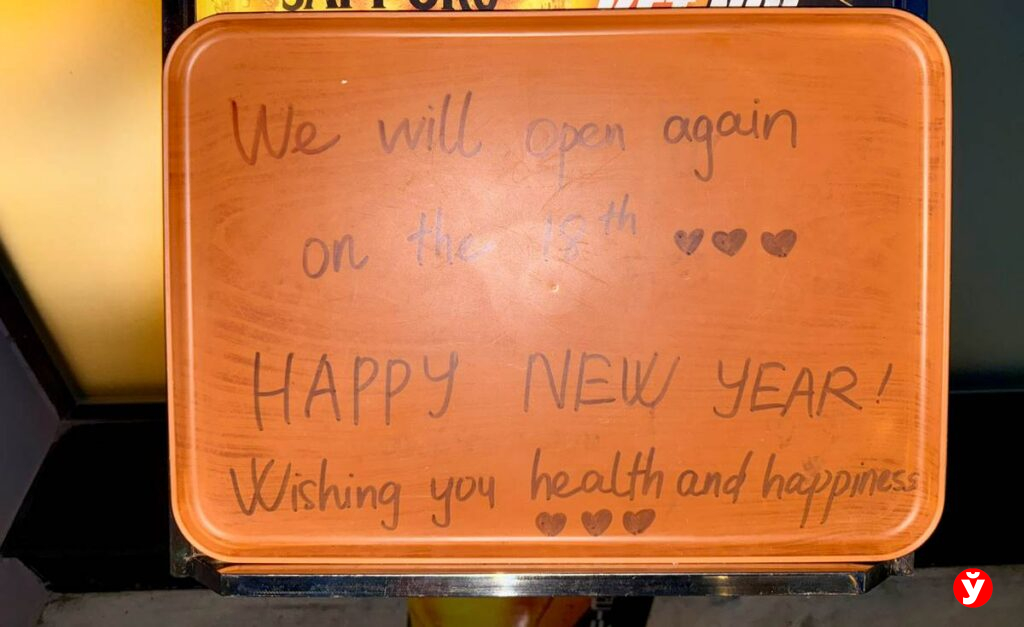 SAPPORO
We will open again
on the 18th ♥♥♥
HAPPY NEW YEAR!
Wishing you health and happiness
♥♥♥
ў